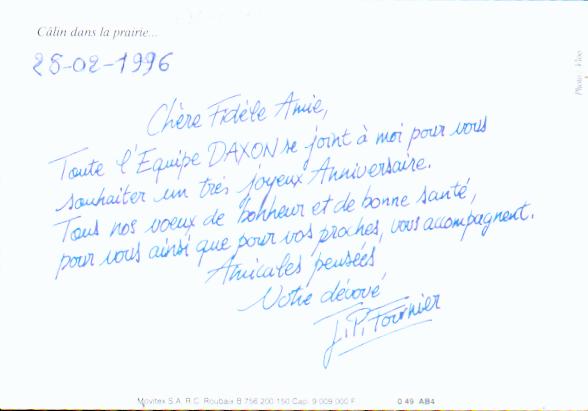 Câlin dans la prairie...
25-02-1996
Chère Fidéle Amie,
Toute l'Equipe DAXON se joint à moi pour vous
souhaiter un très joyeux Anniversaire.
Tous nos voeux de bonheur et de bonne santé,
pour vous ainsi que pour vos proches, vous accompagnent.
Amicales pensées
Votre dévoué
J.P. Fournier
Movitex S.A. R.C. Roubaix B 756 200 150 Cap. 9 009 000 F
0 49 AB4
Photo